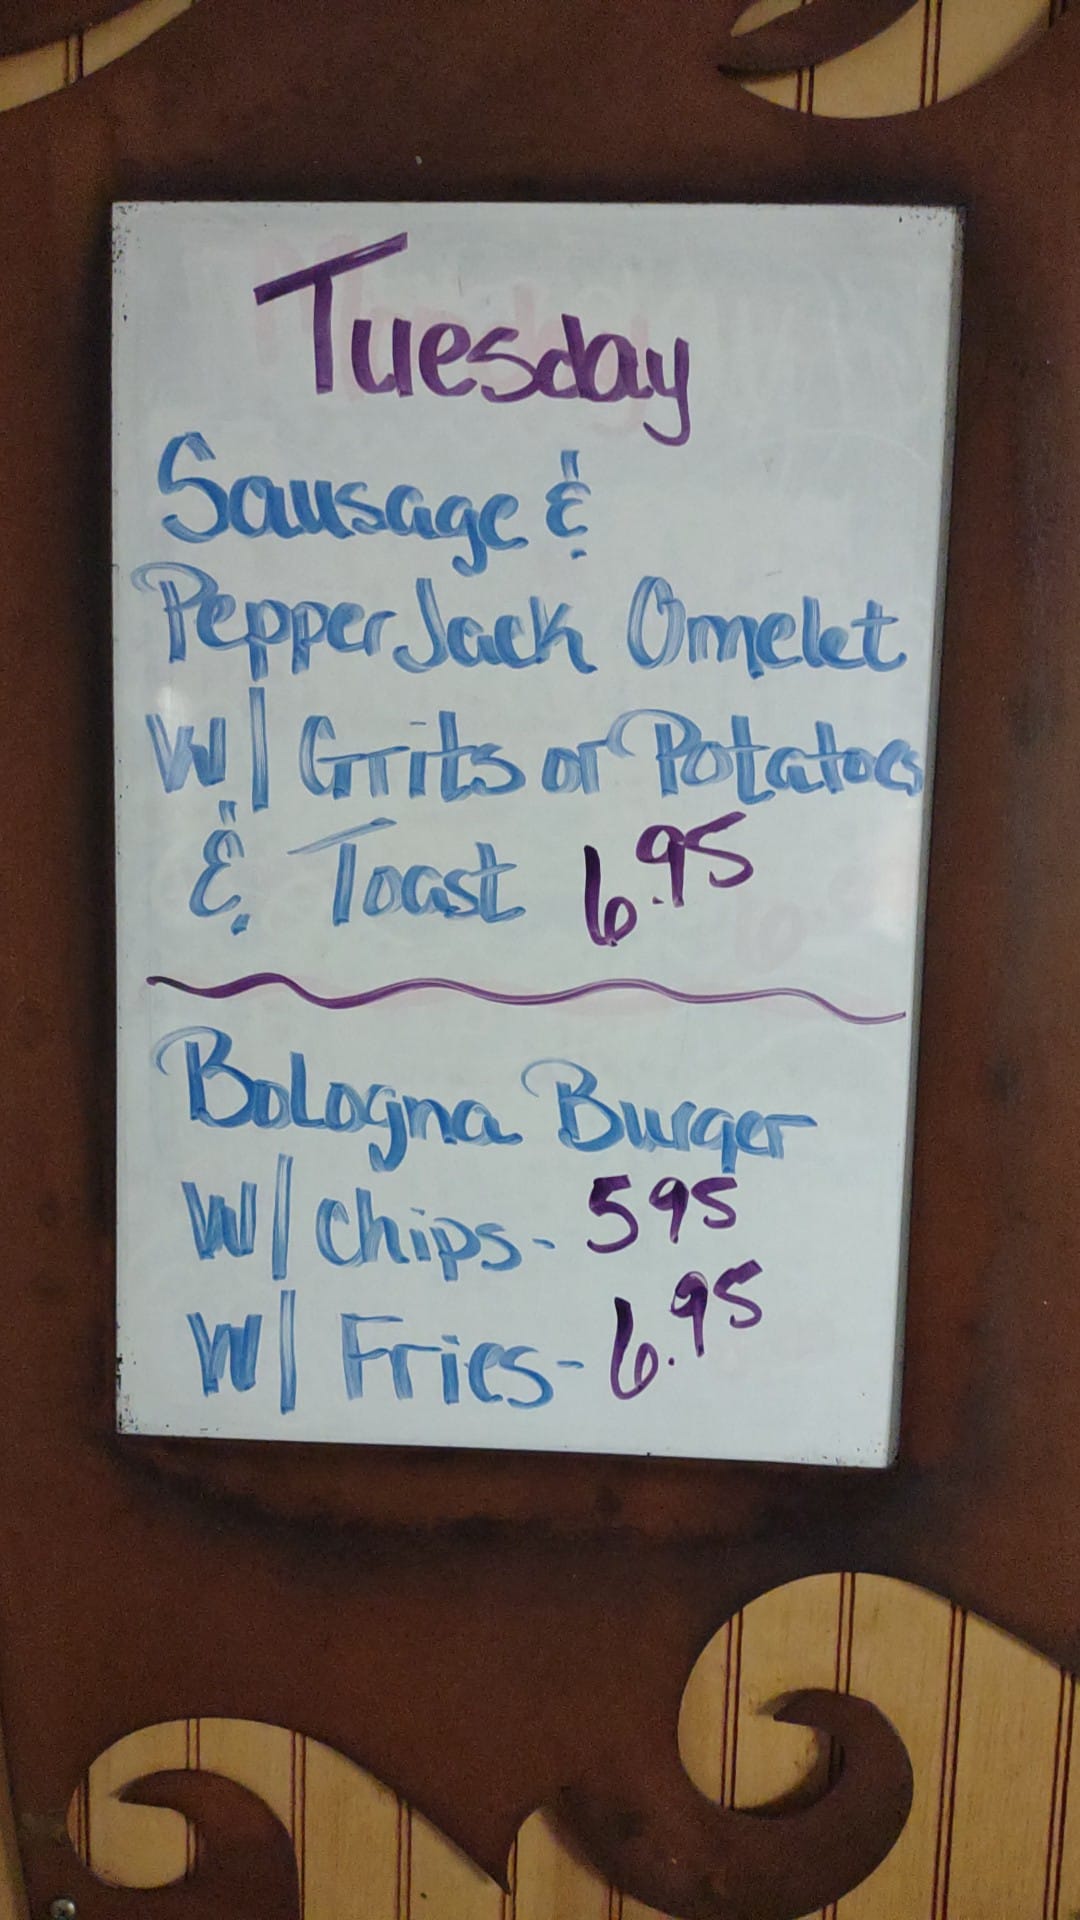 Tuesday
Sausage &
Pepper Jack Omelet
W/ Grits or Potatoes
& Toast 6.95
Bologna Burger
W/ Chips - 595
W/ Fries - 6.95